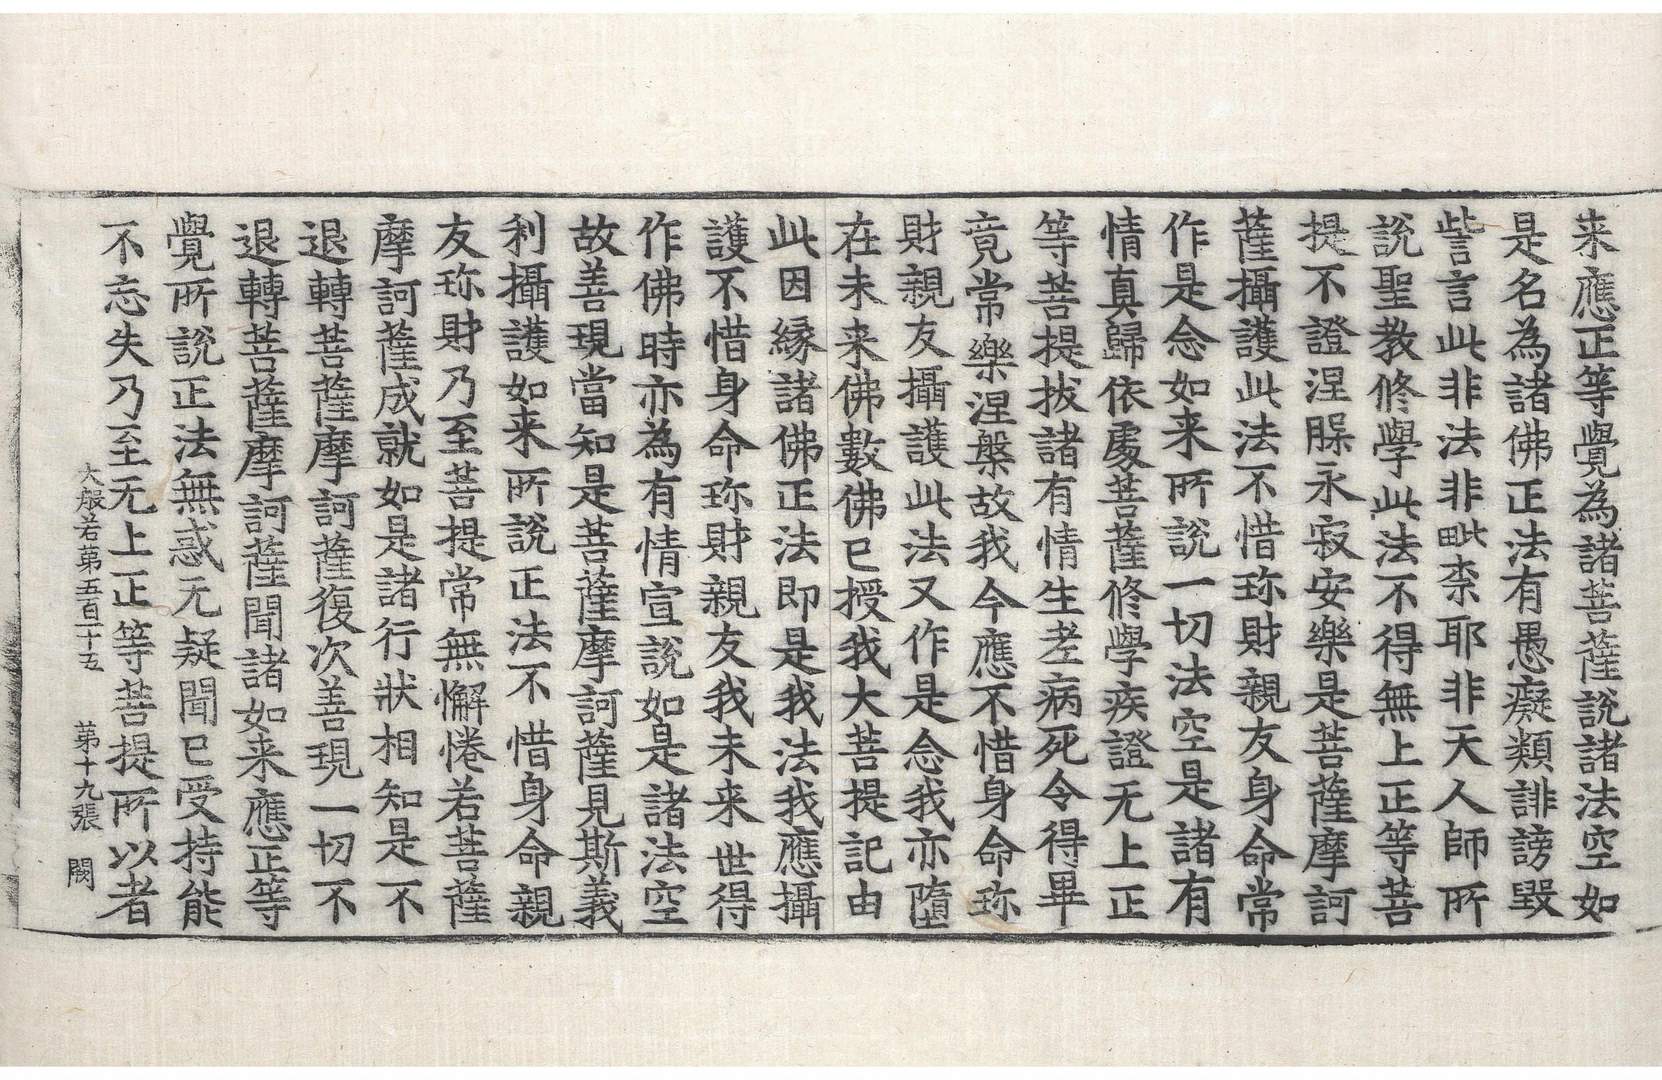 来應正等覺為諸菩薩說諸法空如
是名為諸佛正法有愚癡類誹謗毀
訾言此非法非毗柰耶非天人師所
說聖教修學此法不得無上正等菩
提不證涅槃永寂安樂是菩薩摩訶
薩攝護此法不惜珎財親友身命常
作是念如来所說一切法空是諸有
情真歸依處菩薩修學疾證无上正
等菩提拔諸有情生老病死令得畢
竟常樂涅槃故我今應不惜身命珎
財親友攝護此法又作是念我亦墮
在未来佛數佛已授我大菩提記由
此因緣諸佛正法即是我法我應攝
護不惜身命珎財親友我未来世得
作佛時亦為有情宣說如是諸法空
故善現當知是菩薩摩訶薩見斯義
利攝護如来所說正法不惜身命親
友珎財乃至菩提常無懈惓若菩薩
摩訶薩成就如是諸行狀相知是不
退轉菩薩摩訶薩復次善現一切不
退轉菩薩摩訶薩聞諸如来應正等
覺所說正法無惑无疑聞已受持能
不忘失乃至无上正等菩提所以者
大般若第五百一十五 第十九張 闕